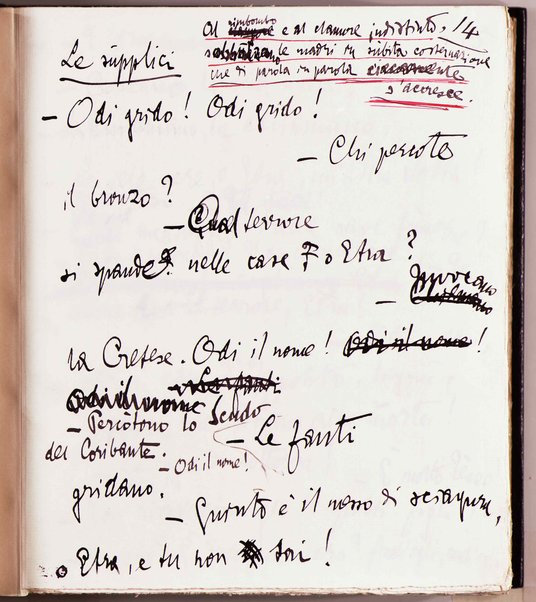 Al rimbombo e al clamore indistinto, 14
le madri in subita costernazione
che di parola in parola
s'accresce.
Le supplici
– Odi grido! Odi grido!
– Chi percote
il bronzo?
– Qual terrore
si spande nelle case? o Etra?
– Invocano
la Cretese. Odi il nome! Odi il nome!
Odi il nome Le fanti
– Percotono lo scudo
del Coribante.
– Le fanti
– Odi il nome!
gridano.
– Giunto è il nesso di sciagura,
Etra, e tu non sai!